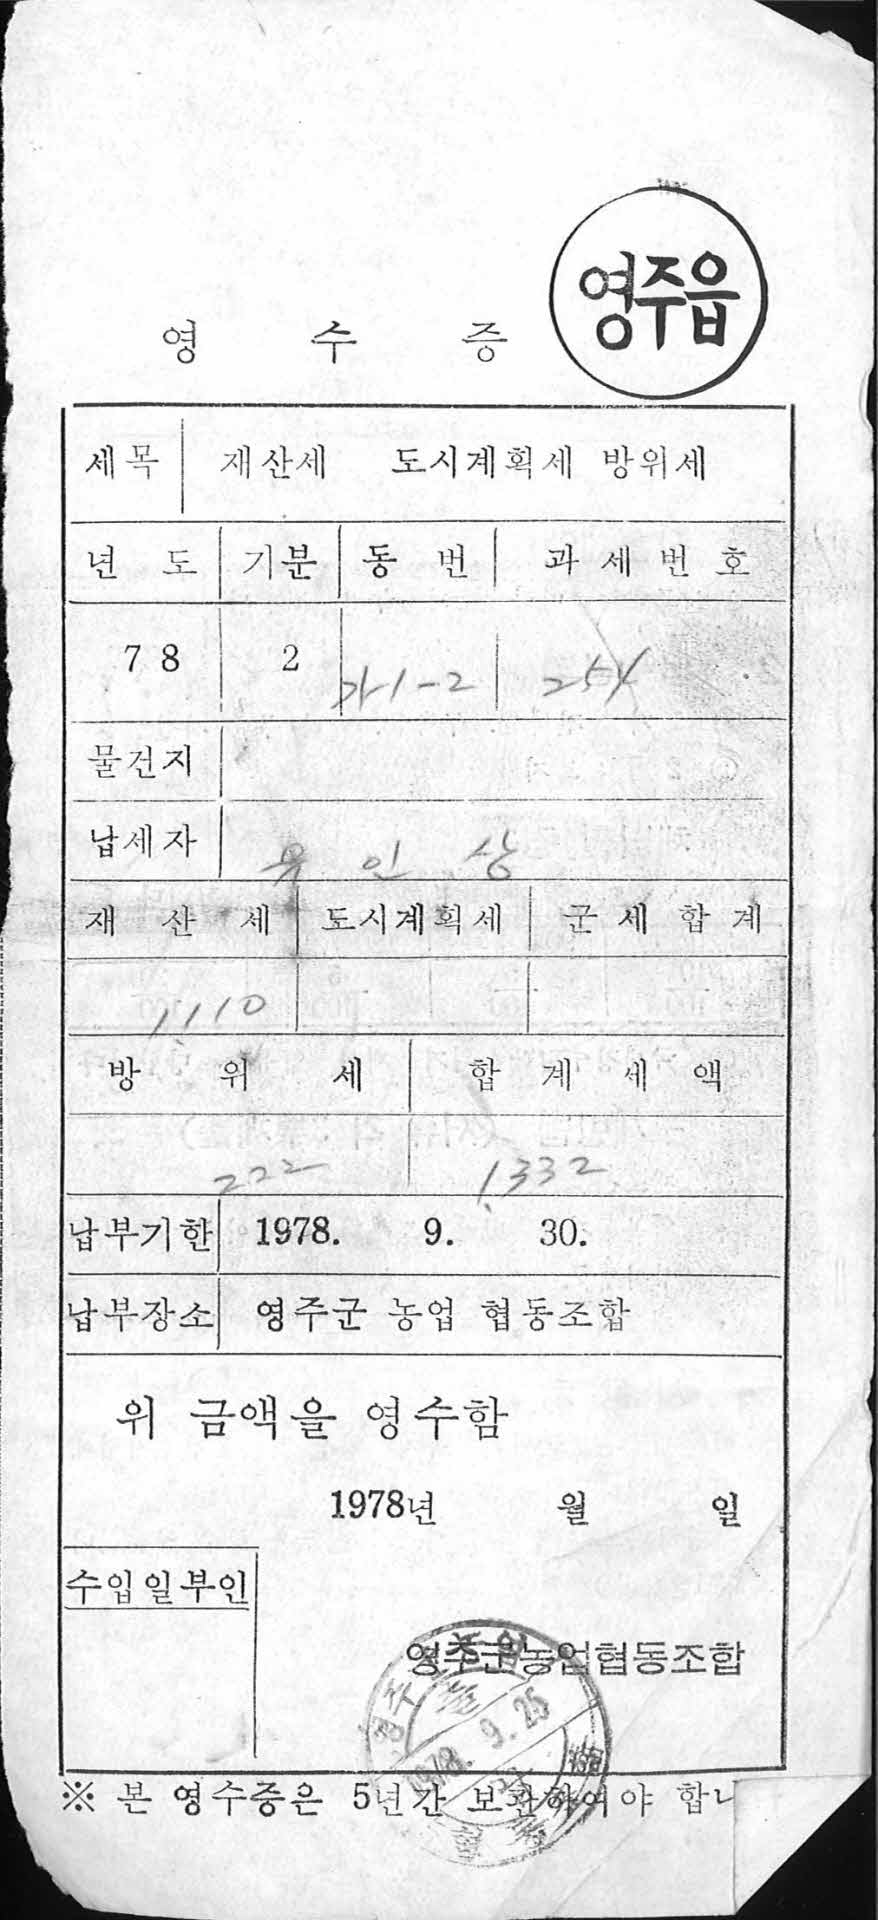 영주읍
영 수 증
세목 재산세 도시계획세 방위세
년 도 기분 동 번 과 세 번 호
78 2 가1-2 254
물건지
납세자 유 인 상
재 산 세 도시계획세 군 세 합 계
1,110
방 위 세 합 계 세 액
222 1,332
납부기한 1978. 9. 30.
납부장소 영주군 농업 협동조합
위 금액을 영수함
1978년 월 일
수입일부인
영주군농업협동조합
1978. 9. 25
※ 본 영수증은 5년간 보관하여야 합니